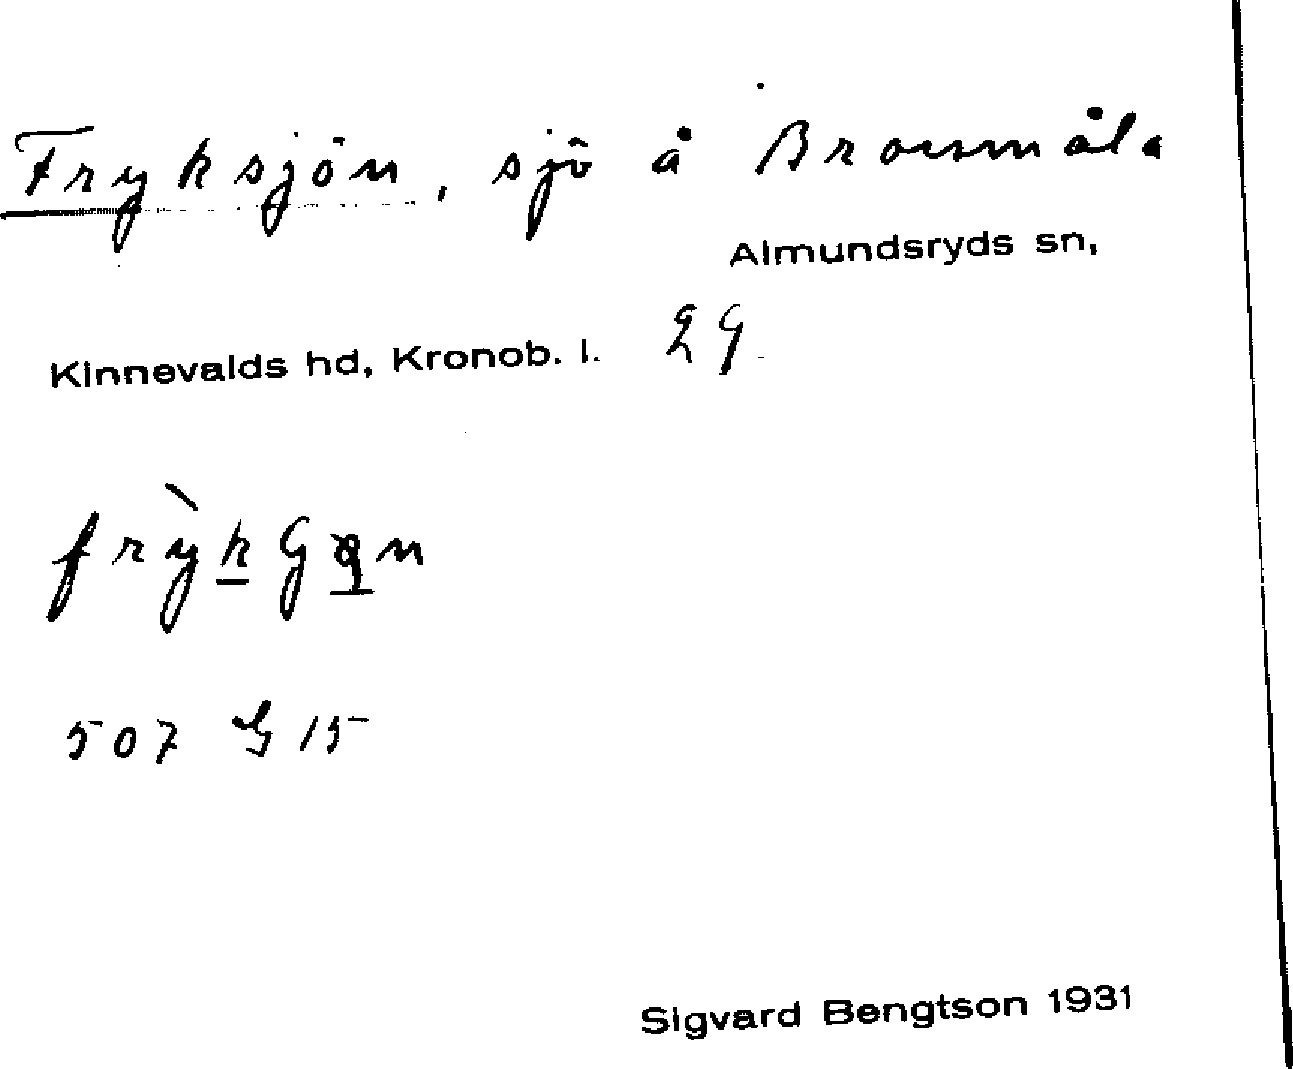 Fryksjön, sjö å Brorsmåla
Almundsryds sn,
Kinnevalds hd, Kronob. l. 29
507 G 15
Sigvard Bengtson 1931